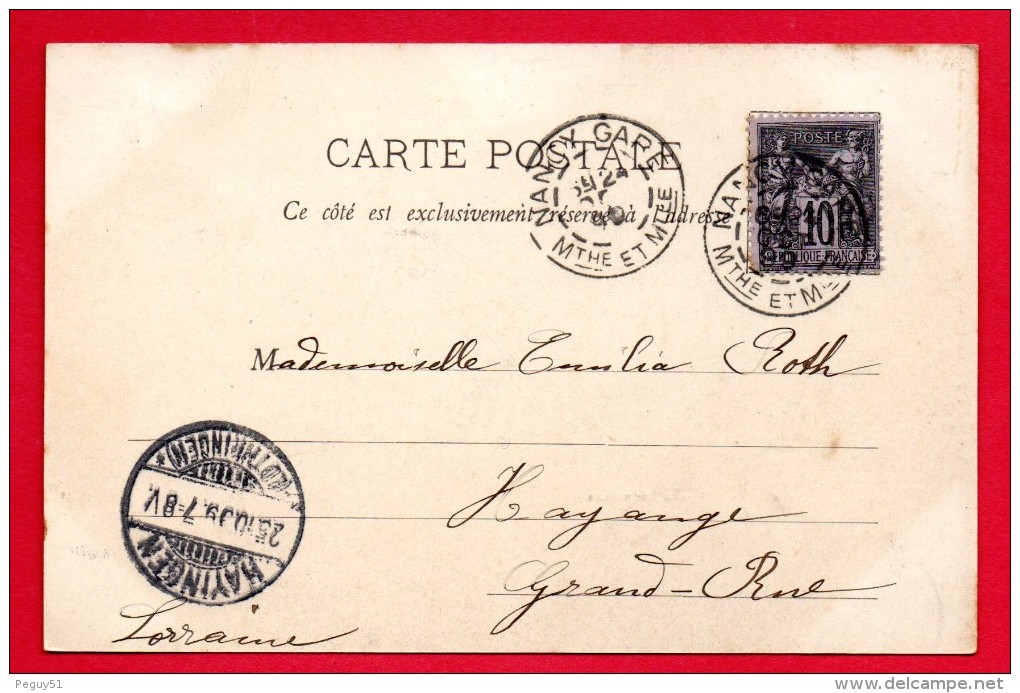 CARTE POSTALE
Ce côté est exclusivement réservé à l'adresse
NANCY GARE
MTHE ET MLLE
POSTE
10
REPUBLIQUE FRANCAISE
MTHE ET M
Mademoiselle Emilia Roth
Hayange
Grand-Rue
Lorraine
HAYINGEN
(LOTHRINGEN)
25.10.99. 7-8V.
Peguy51
www.delcampe.net